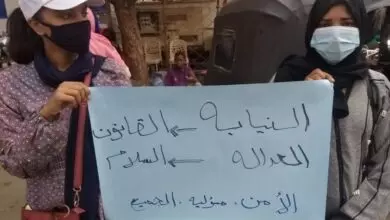 النيابة ← القانون
العدالة ← السلام
الأمن . مسؤلية . الجميع